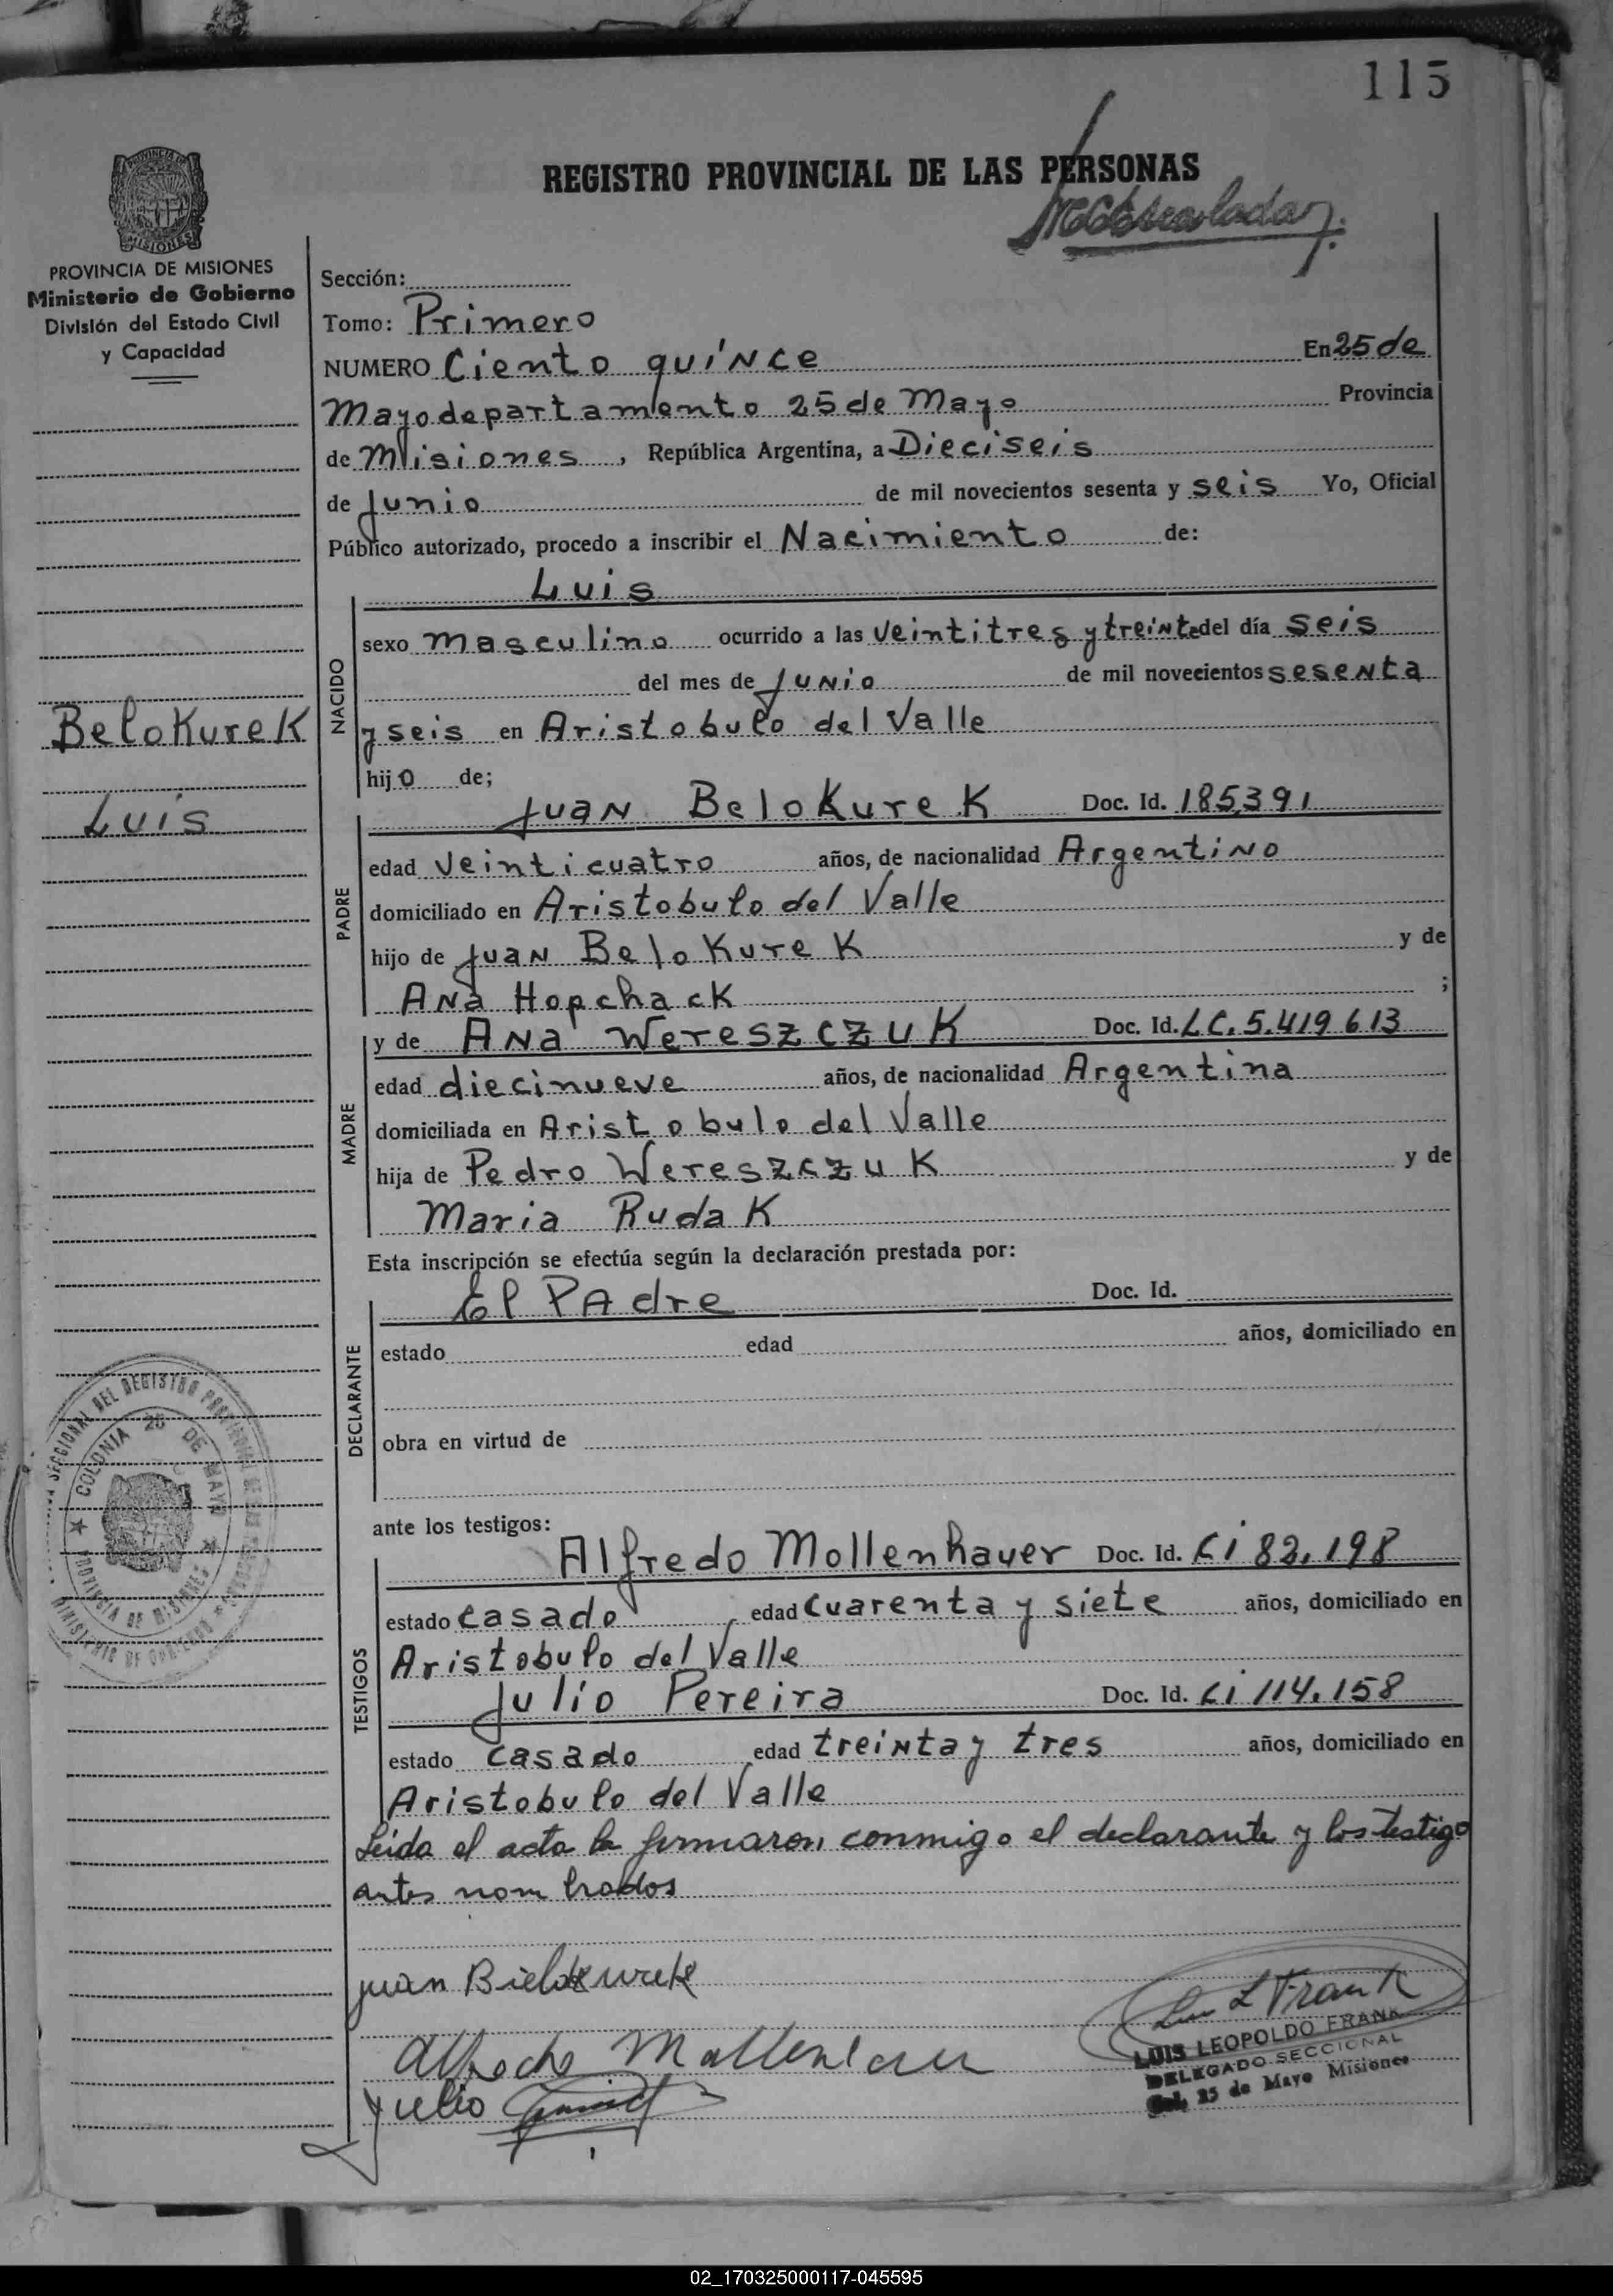 115
REGISTRO PROVINCIAL DE LAS PERSONAS
PROVINCIA DE MISIONES
Ministerio de Gobierno
División del Estado Civil
y Capacidad
Sección:
Tomo: Primero
NUMERO Ciento quince En 25 de
Mayo departamento 25 de Mayo Provincia
de Misiones, República Argentina, a Dieciseis
de Junio de mil novecientos sesenta y seis Yo, Oficial
Público autorizado, procedo a inscribir el Nacimiento de:
Luis
NACIDO
sexo masculino ocurrido a las veintitres y treinta del día seis
del mes de Junio de mil novecientos sesenta
y seis en Aristobulo del Valle
hijo de;
Belokurek
Luis
PADRE
Juan Belokurek Doc. Id. 185391
edad veinticuatro años, de nacionalidad Argentino
domiciliado en Aristobulo del Valle
hijo de Juan Belokurek y de
Ana Hopchack ;
MADRE
y de Ana Wereszczuk Doc. Id. LC. 5.419613
edad diecinueve años, de nacionalidad Argentina
domiciliada en Aristobulo del Valle
hija de Pedro Wereszczuk y de
Maria Rudak
Esta inscripción se efectúa según la declaración prestada por:
DECLARANTE
El Padre Doc. Id.
estado edad años, domiciliado en
obra en virtud de
COLONIA 25 DE MAYO
PROVINCIA DE MISIONES
MINISTERIO DE GOBIERNO
ante los testigos:
TESTIGOS
Alfredo Mollenhauer Doc. Id. Ci 82.198
estado casado edad cuarenta y siete años, domiciliado en
Aristobulo del Valle
Julio Pereira Doc. Id. Ci 114.158
estado casado edad treinta y tres años, domiciliado en
Aristobulo del Valle
Leida el acta la firmaron conmigo el declarante y los testigo
antes nombrados
Juan Bielokurek
Alfredo Mollenhauer
Julio
L Frank
LUIS LEOPOLDO FRANK
DELEGADO SECCIONAL
Col. 25 de Mayo Misiones
02_170325000117-045595